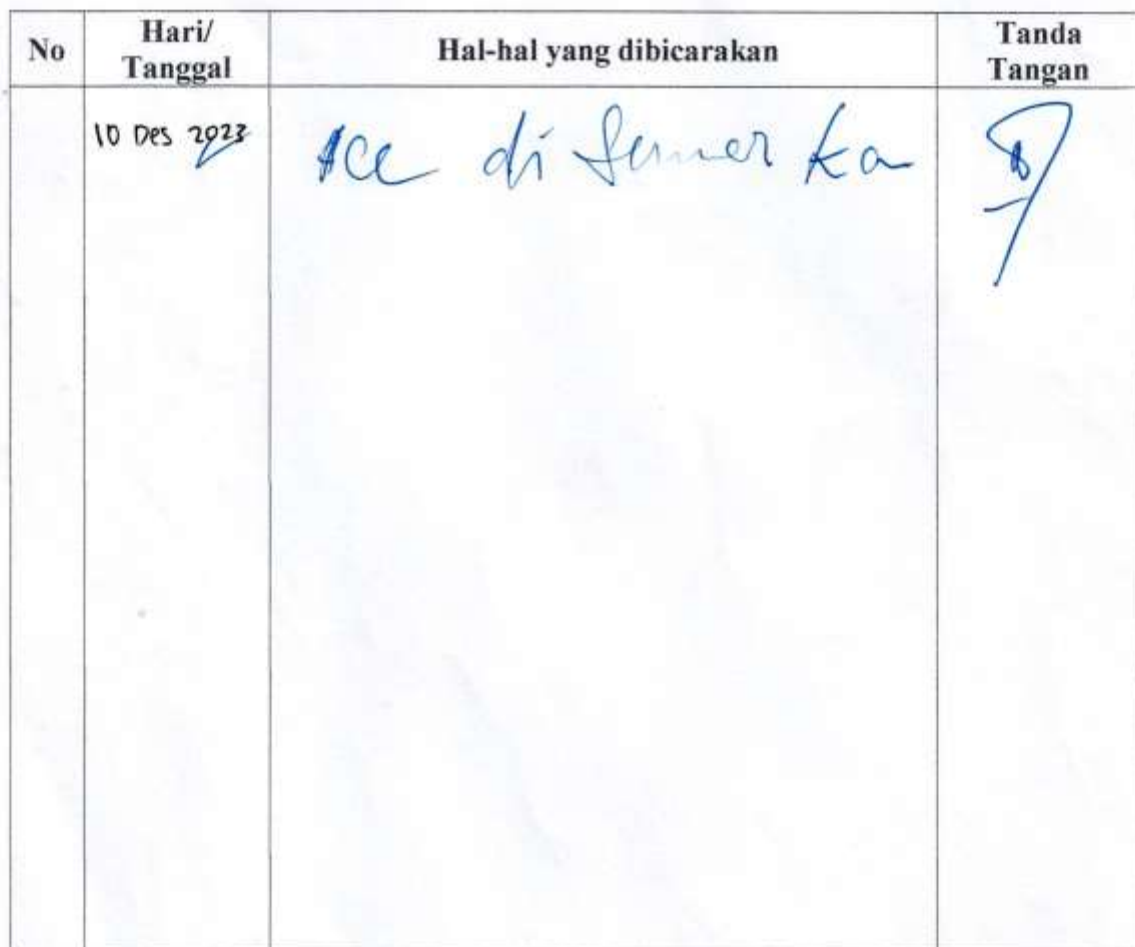 No
Hari/
Tanggal
Hal-hal yang dibicarakan
Tanda
Tangan
10 Des 2023
Acc di